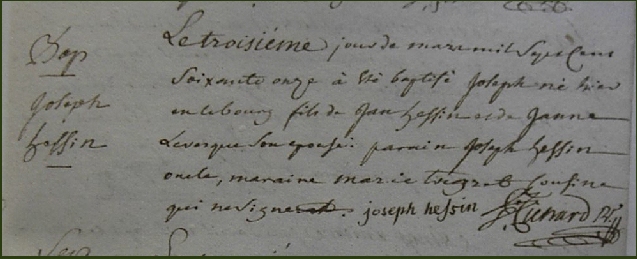 Bap
Joseph
hessin
Le troisiéme jour de mars mil Sept Cent
Soixante onze à été baptisé Joseph né hier
en le bourg fils de Jan hessin et de Janne
Levesque Son epouse: parain Joseph hessin
oncle, maraine marie Cousine
qui ne signe joseph hessin